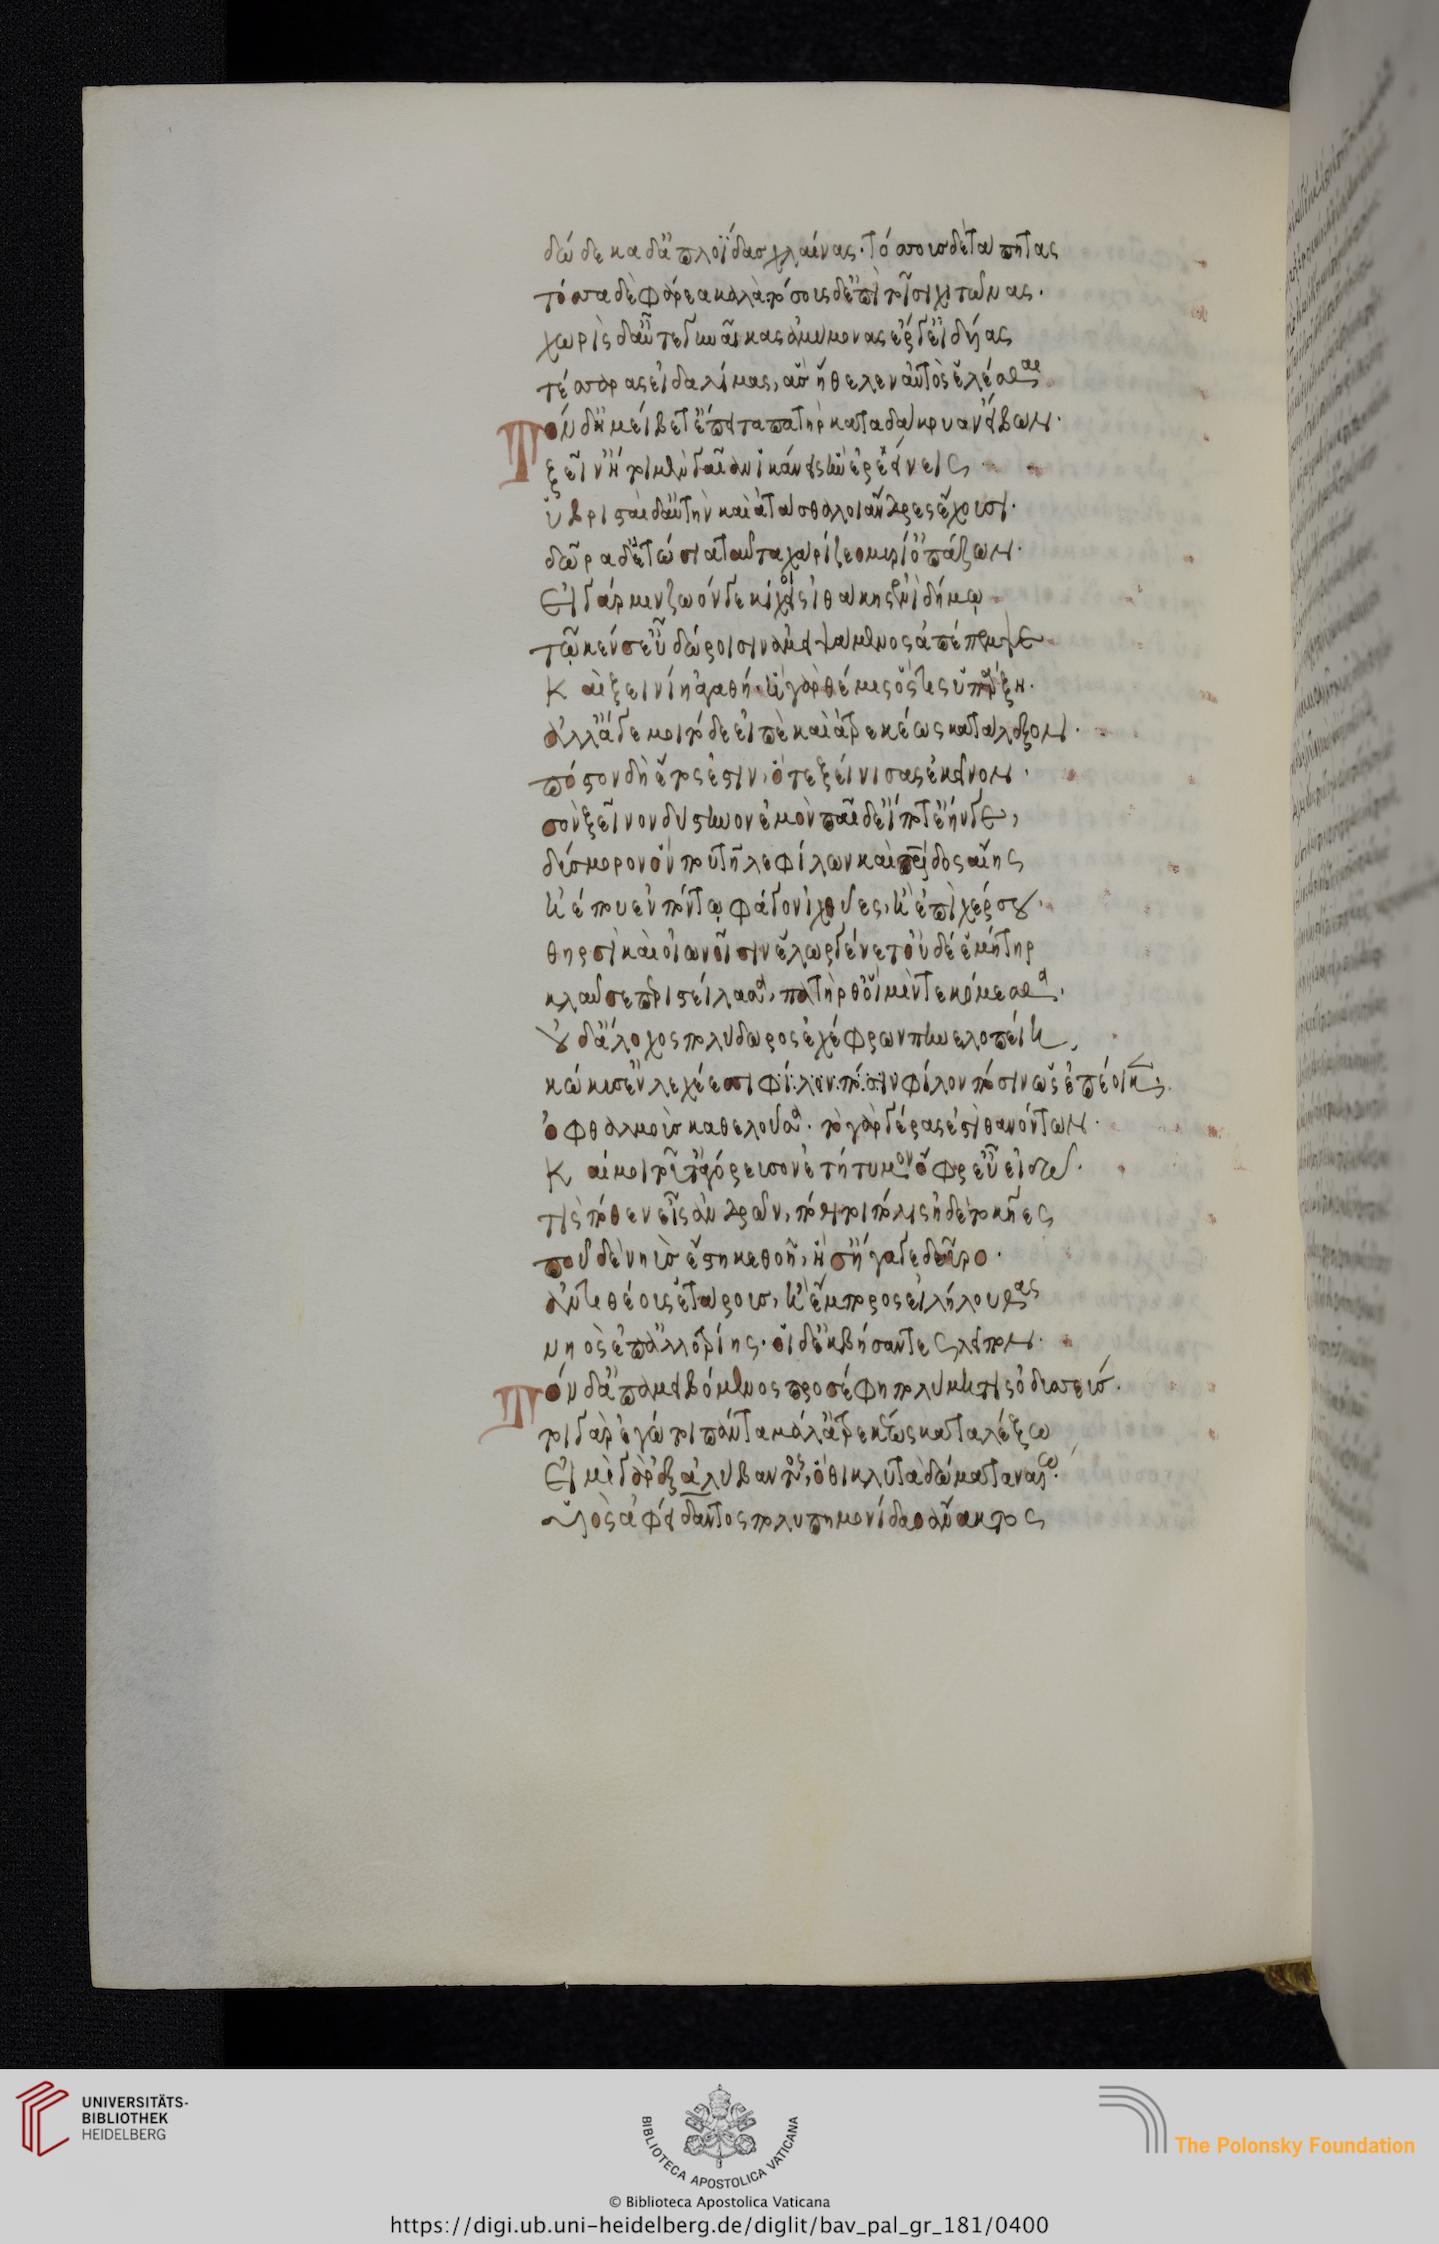 δώδεκα δ' ἁπλοΐδας χλαίνας· τόσσους δὲ τάπητας
τόσσα δὲ φάρεα καλὰ τόσους δ' ἐπὶ τοῖσι χιτῶνας·
χωρὶς δ' αὖτε γυναῖκας ἀμύμονας ἔργ' εἰδυίας
τέσσαρας εἰδαλίμας, ἃς ἤθελεν αὐτὸς ἑλέσθαι
Τὸν δ' ἠμείβετ' ἔπειτα πατὴρ κατὰ δάκρυαν εἴβων·
ξεῖν' ἤτοι μὲν γαῖαν ἱκάνεις ἣν ἐρεείνεις
ὑβρισταὶ δ' αὐτὴν καὶ ἀτάσθαλοι ἄνδρες ἔχουσι·
δῶρα δ' ἐτώσια ταῦτα χαρίζεο μυρί' ὀπάζων·
Εἰ γάρ μιν ζωόν γε κίχεις ἰθάκης ἐνὶ δήμῳ
τῷ κέν σ' εὖ δώροισιν ἀμειψάμενος ἀπέπεμψε
Καὶ ξεινίη ἀγαθῇ· ἡ γὰρ θέμις ὅστις ὑπάρξῃ·
ἀλλ' ἄγε μοι τόδε εἰπὲ καὶ ἀτρεκέως κατάλεξον·
πόσον δὴ ἔτος ἐστιν, ὅτε ξείνισας ἐκεῖνον·
σὸν ξεῖνον δύστηνον ἐμὸν παῖδ' εἴποτ' ἔην γε,
δύσμορον ὅν που τῆλε φίλων καὶ πατρίδος αἴης
ἠέ που ἐν πόντῳ φάγον ἰχθύες, ἢ ἐπὶ χέρσου·
θηρσὶ καὶ οἰωνοῖσιν ἕλωρ γένετ' οὐδέ ἑ μήτηρ
κλαῦσε περιστείλασα, πατήρ θ' οἵ μιν τεκόμεσθα·
οὐδ' ἄλοχος πολύδωρος ἐχέφρων πηνελοπείη,
κώκυσ' ἐν λεχέεσσι φίλον πόσιν φίλον πόσιν ὡς ἐπέοικεν·
ὀφθαλμοὺς καθελοῦσα· τὸ γὰρ γέρας ἐστὶ θανόντων·
Καί μοι τοῦτ' ἀγόρευσον ἐτήτυμον ὄφρ' εὖ εἰδῶ·
τίς πόθεν εἶς ἀνδρῶν, πόθι τοι πόλις ἠδὲ τοκῆες
ποῦ δὲ νηῦς ἕστηκε θοὴ, ἥ σ' ἤγαγε δεῦρο·
ἀντιθέους ἑτάρους, ἢ ἔμπορος εἰλήλουθας
νηὸς ἐπ' ἀλλοτρίης· οἱ δ' ἐκβήσαντες λείπον·
Τὸν δ' ἀπαμειβόμενος προσέφη πολύμητις ὀδυσσεύς·
τοιγὰρ ἐγώ τοι πάντα μάλ' ἀτρεκέως καταλέξω
Εἰμὶ γὰρ ἐξ ἀλύβαντος, ὅθι κλυτὰ δώματα ναίω·
υἱὸς ἀφείδαντος πολυπημονίδαο ἄνακτος
UNIVERSITÄTS-
BIBLIOTHEK
HEIDELBERG
BIBLIOTECA APOSTOLICA VATICANA
The Polonsky Foundation
© Biblioteca Apostolica Vaticana
https://digi.ub.uni-heidelberg.de/diglit/bav_pal_gr_181/0400